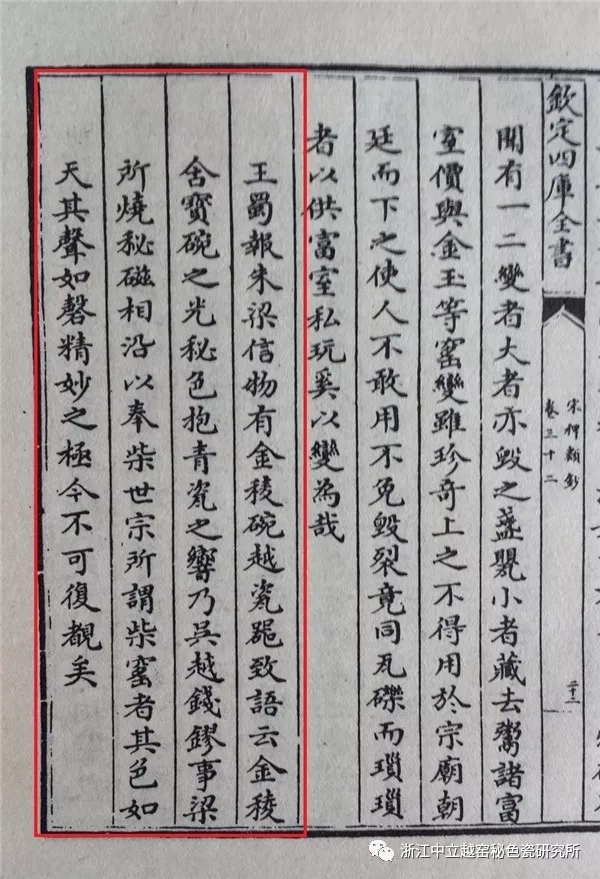 欽定四庫全書
宋稗類鈔
卷三十二
二十二
聞有一二變者大者亦毀之盞甖小者藏去鬻諸富
室價與金玉等窰變雖珍奇上之不得用於宗廟朝
廷而下之使人不敢用不免毀裂竟同瓦礫而瑣瑣
者以供富室私玩奚以變為哉
王蜀報朱梁信物有金稜碗越瓷器致語云金稜
含寶碗之光秘色抱青瓷之響乃吳越錢鏐事梁
所燒秘磁相沿以奉柴世宗所謂柴窰者其色如
天其聲如磬精妙之極今不可復覩矣
浙江中立越窑秘色瓷研究所